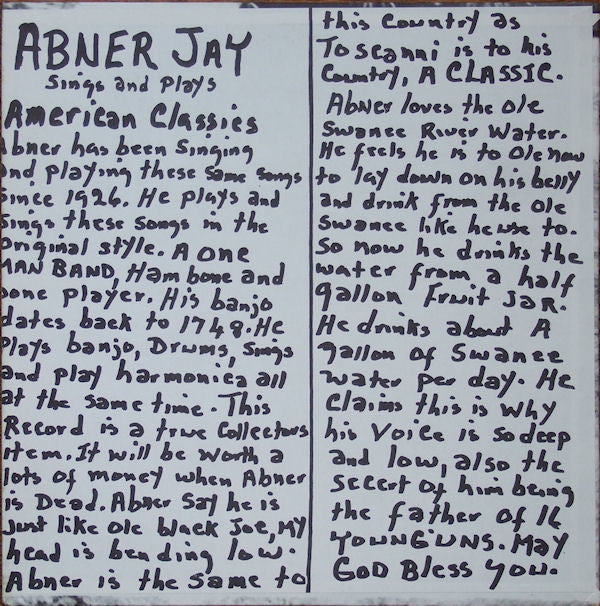 ABNER JAY
Sings and Plays
American Classics
Abner has been Singing
and playing these same songs
since 1926. He plays and
sings these songs in the
original style. A one
MAN BAND, Ham bone and
bone player. His banjo
dates back to 1748. He
Plays banjo, Drums, Sings
and play harmonica all
at the same time. This
Record is a true Collectors
item. It will be worth a
lots of money when Abner
is Dead. Abner Say he is
just like ole black Joe, MY
head is bending low.
Abner is the same to
this Country as
Toscanni is to his
Country, A CLASSIC.
Abner loves the ole
Swanee River Water.
He feels he is to Ole now
to lay down on his belly
and drink from the ole
Swanee like he use to.
So now he drinks the
water from a half
gallon Fruit JAR.
He drinks about A
gallon of Swanee
water per day. He
Claims this is why
his Voice is so deep
and low, also the
secert of him being
the father of 16
YOUNG'UNS. May
GOD Bless You.